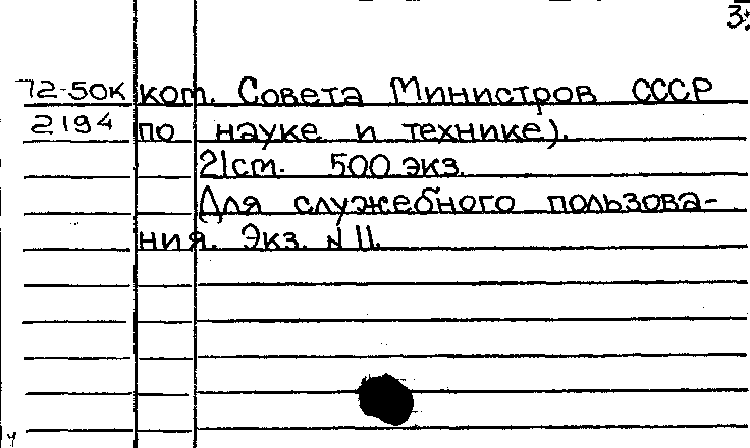 72-50к ком. Совета Министров СССР
2194 по науке и технике).
21см. 500 экз.
Для служебного пользова-
ния. Экз. N 11.